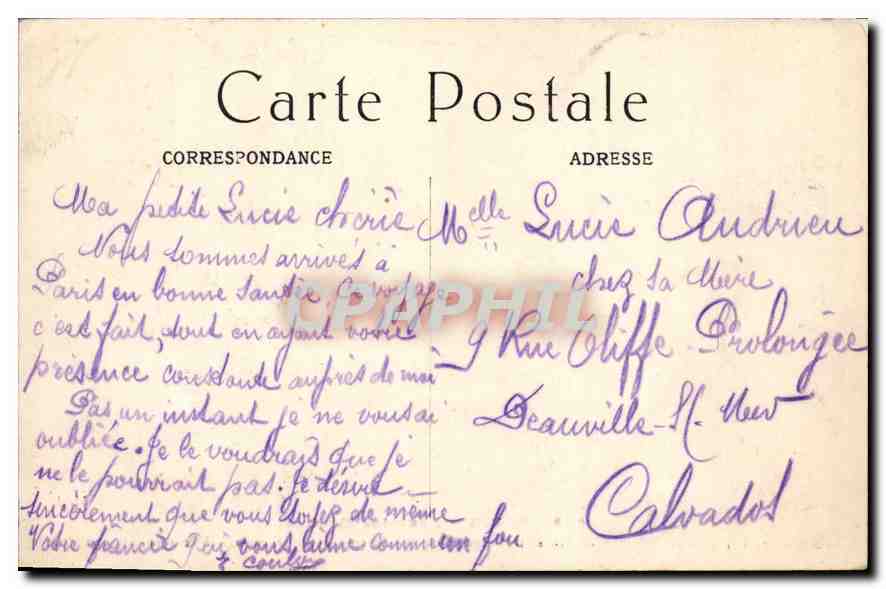 Carte Postale
CORRESPONDANCE
ADRESSE
Ma petite Lucie chérie
Nous sommes arrivés à
Paris en bonne santée. Ce voyage
c'est fait, tout en ayant votre
présence constante auprès de moi
Pas un instant je ne vous ai
oubliée. Je le voudrais que je
ne le pourrait pas. Je désire
sincèrement que vous soyez de même
Votre fiancé qui vous aime comme un fou.
Melle Lucie Andrieu
chez sa Mère
9 Rue Oliffe Prolongée
Deauville-S/-Mer
Calvados
CPAPHIL